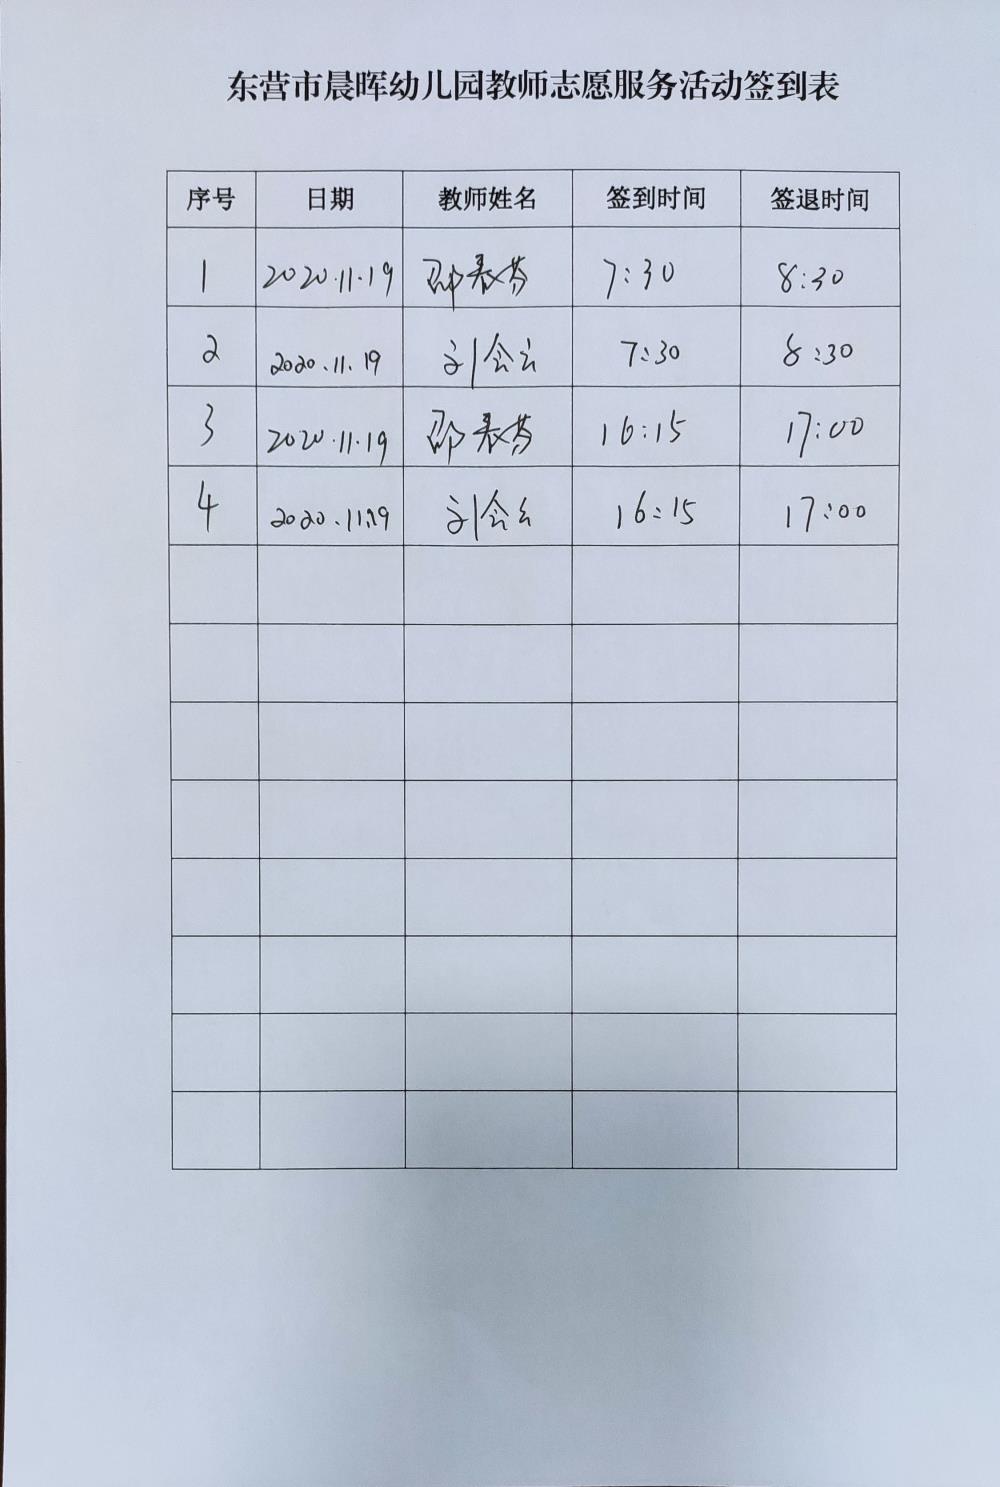 东营市晨晖幼儿园教师志愿服务活动签到表
序号 日期 教师姓名 签到时间 签退时间
1 2020.11.19 邵春芬 7:30 8:30
2 2020.11.19 刘会云 7:30 8:30
3 2020.11.19 邵春芬 16:15 17:00
4 2020.11.19 刘会云 16:15 17:00